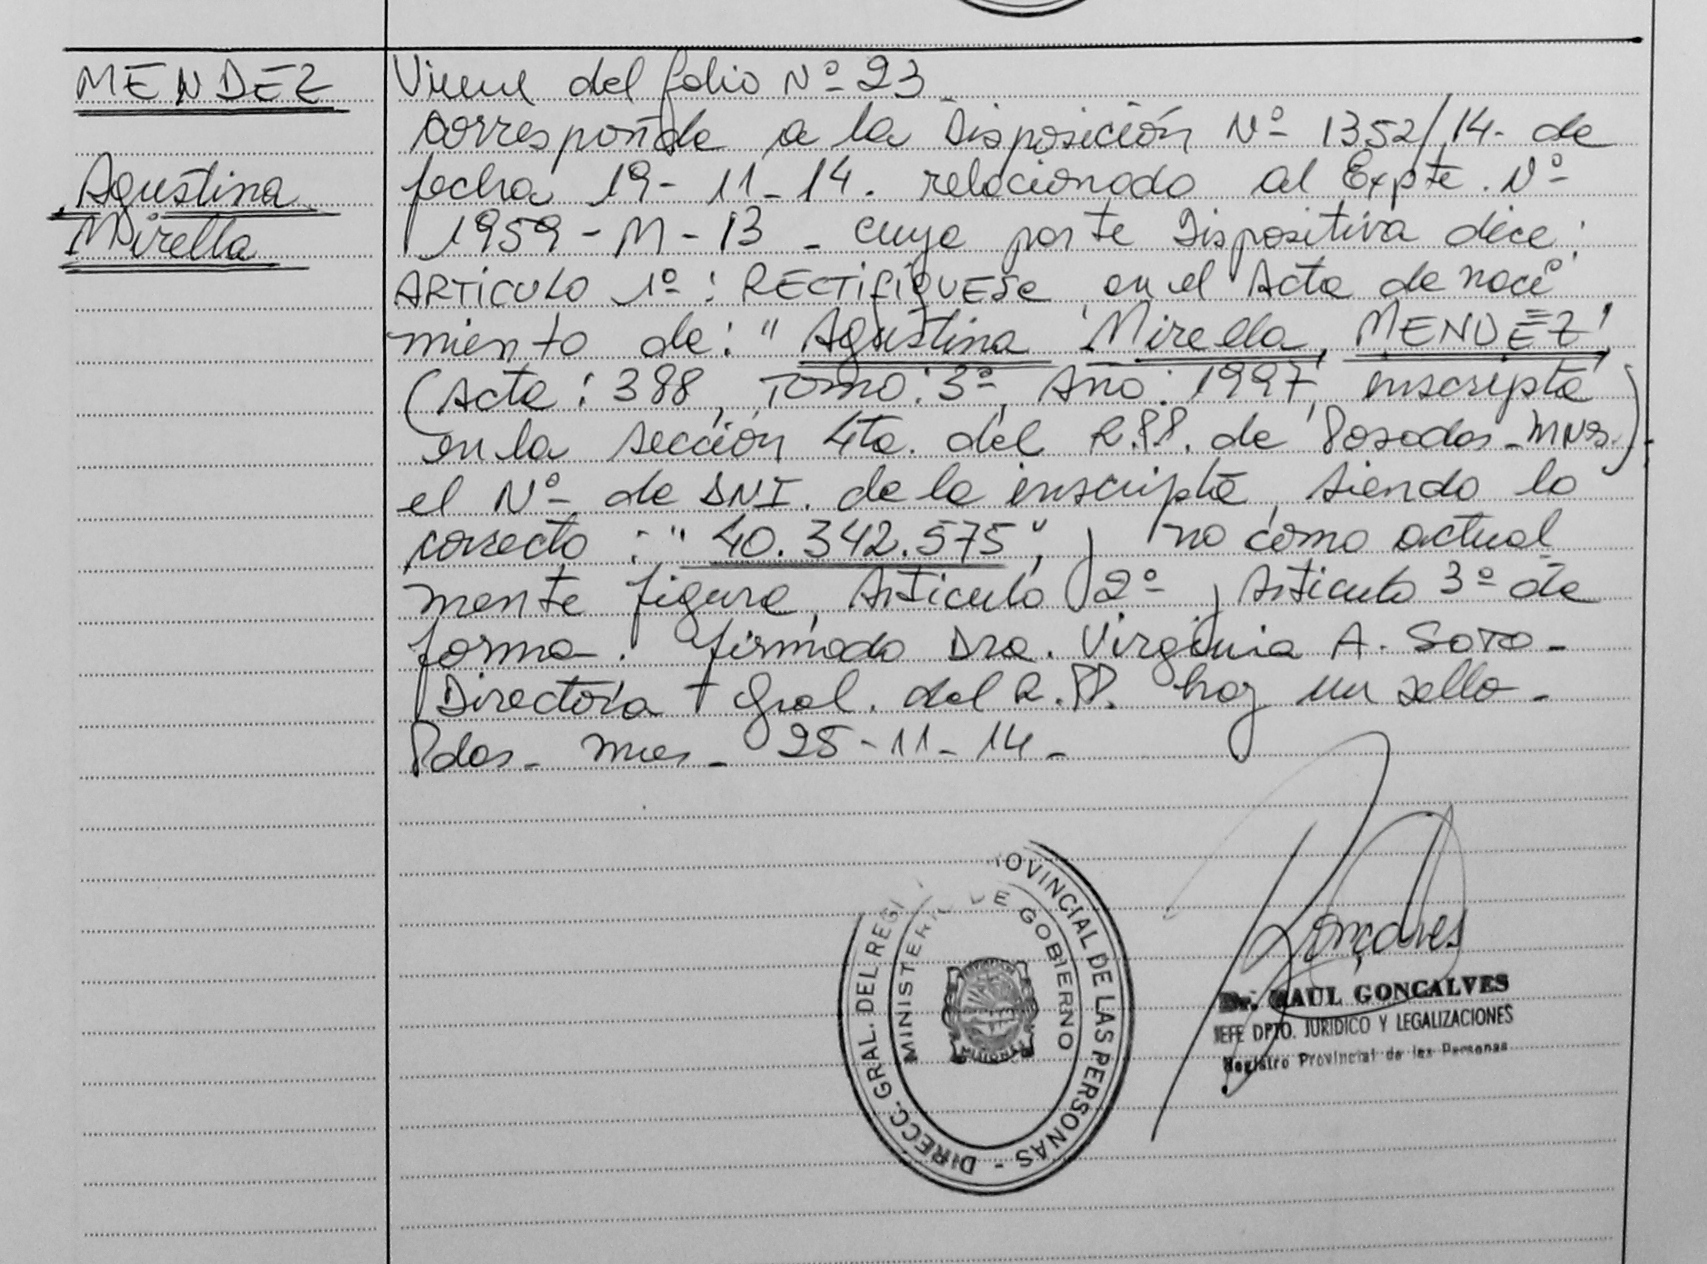 MENDEZ
Agustina
Mirella
Viene del folio Nº 23
corresponde a la Disposición Nº 1352/14- de
fecha 19-11-14. relacionado al Expte. Nº
1959-M-13 - cuya parte Dispositiva dice:
ARTICULO 1º: RECTIFIQUESE en el Acta de naci
miento de: " Agustina Mirella MENDEZ"
(Acta: 388, Tomo: 3º, Año: 1997, inscripta
en la sección 4ta. del R.P.P. de Posadas-Mnes.)
el Nº de DNI. de la inscripta, siendo lo
correcto : "40.342.575", y no como actual
mente figura, Articulo 2º y Articulo 3º de
forma. firmado Dra. Virginia A. SOTO-
Directora Gral. del R.PP. hay un sello-
Pdas- Mnes- 25-11-14-
DIRECC. GRAL. DEL REGI OVINCIAL DE LAS PERSONAS -
MINISTERI DE GOBIERNO
MISIONES
Gonçalves
Dr. RAUL GONCALVES
JEFE DPTO. JURIDICO Y LEGALIZACIONES
Registro Provincial de las Personas